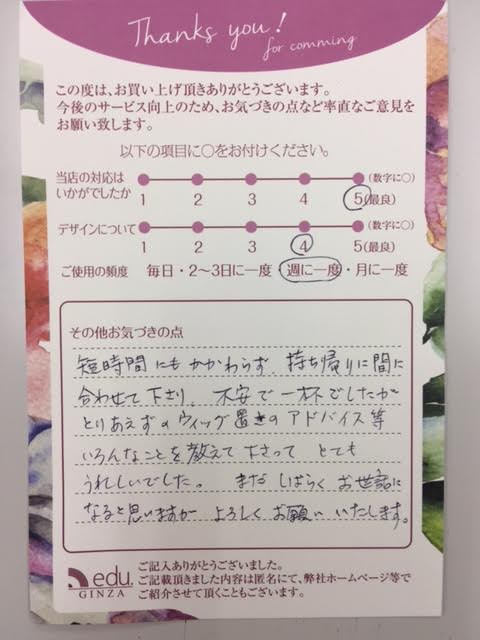 Thanks you!
for comming
この度は、お買い上げ頂きありがとうございます。
今後のサービス向上のため、お気づきの点など率直なご意見を
お願い致します。
以下の項目に○をお付けください。
当店の対応は
いかがでしたか
1 2 3 4 5(最良)
(数字に○)
デザインについて
1 2 3 4 5(最良)
(数字に○)
ご使用の頻度 毎日・2〜3日に一度・週に一度・月に一度
その他お気づきの点
短時間にもかかわらず、持ち帰りに間に
合わせて下さり、不安で一杯でしたが
とりあえずのウィッグ置きのアドバイス等
いろんなことを教えて下さって とても
うれしいでした。 まだ しばらく お世話に
なると思いますが よろしく お願い いたします。
edu.
GINZA
ご記入ありがとうございました。
ご記載頂きました内容は匿名にて、弊社ホームページ等で
ご紹介させて頂くこともございます。